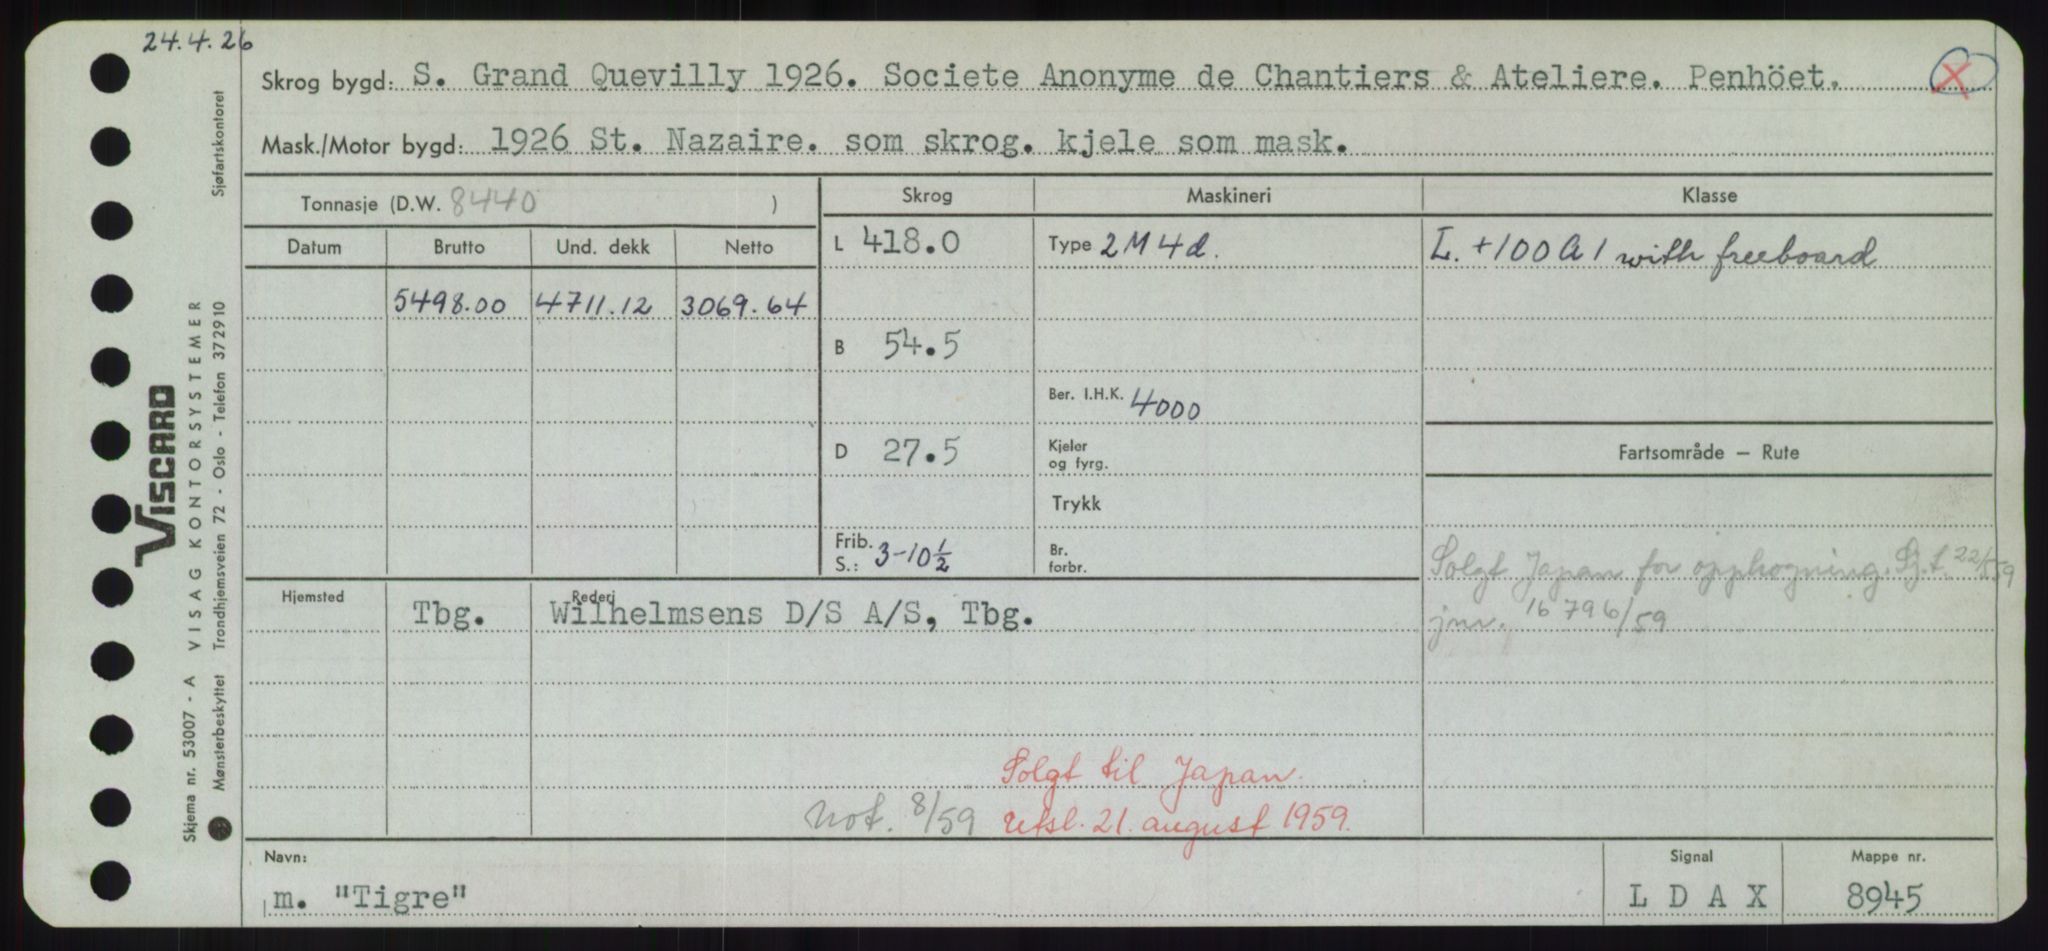 24.4.26
Skrog bygd: S. Grand Quevilly 1926. Societe Anonyme de Chantiers & Ateliere. Penhöet. X
Mask./Motor bygd: 1926 St. Nazaire. som skrog. kjele som mask.
Tonnasje (D.W. 8440 )
Skrog
Maskineri
Klasse
Datum Brutto Und. dekk Netto
L 418.0
Type 2 M 4 d.
L. +100 A 1 with freeboard
5498.00 4711.12 3069.64
B 54.5
Ber. I.H.K. 4000
D 27.5
Kjeler
og fyrg.
Fartsområde — Rute
Trykk
Frib.
S.: 3-10 1/2
Br.
forbr.
Solgt Japan for opphogning. Sj.f. 22/5 59
jnr. 16796/59
Hjemsted
Tbg.
Rederi
Wilhelmsens D/S A/S, Tbg.
Solgt til Japan.
not. 8/59 utsl. 21. august 1959.
Navn:
m. "Tigre"
Signal
L D A X
Mappe nr.
8945
Sjøfartskontoret
VISCARD
VISAG KONTORSYSTEMER
Trondhjemsveien 72 - Oslo - Telefon 372910
Skjema nr. 53007 - A
Mønsterbeskyttet